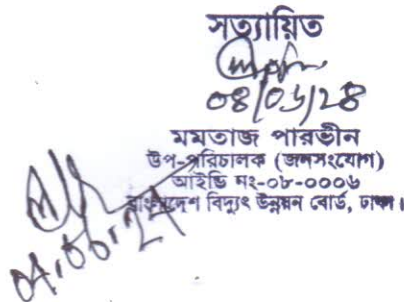 সত্যায়িত
০৪/০৬/২৪
মমতাজ পারভীন
উপ-পরিচালক (জনসংযোগ)
আইডি নং-০৮-০০০৬
বাংলাদেশ বিদ্যুৎ উন্নয়ন বোর্ড, ঢাকা।